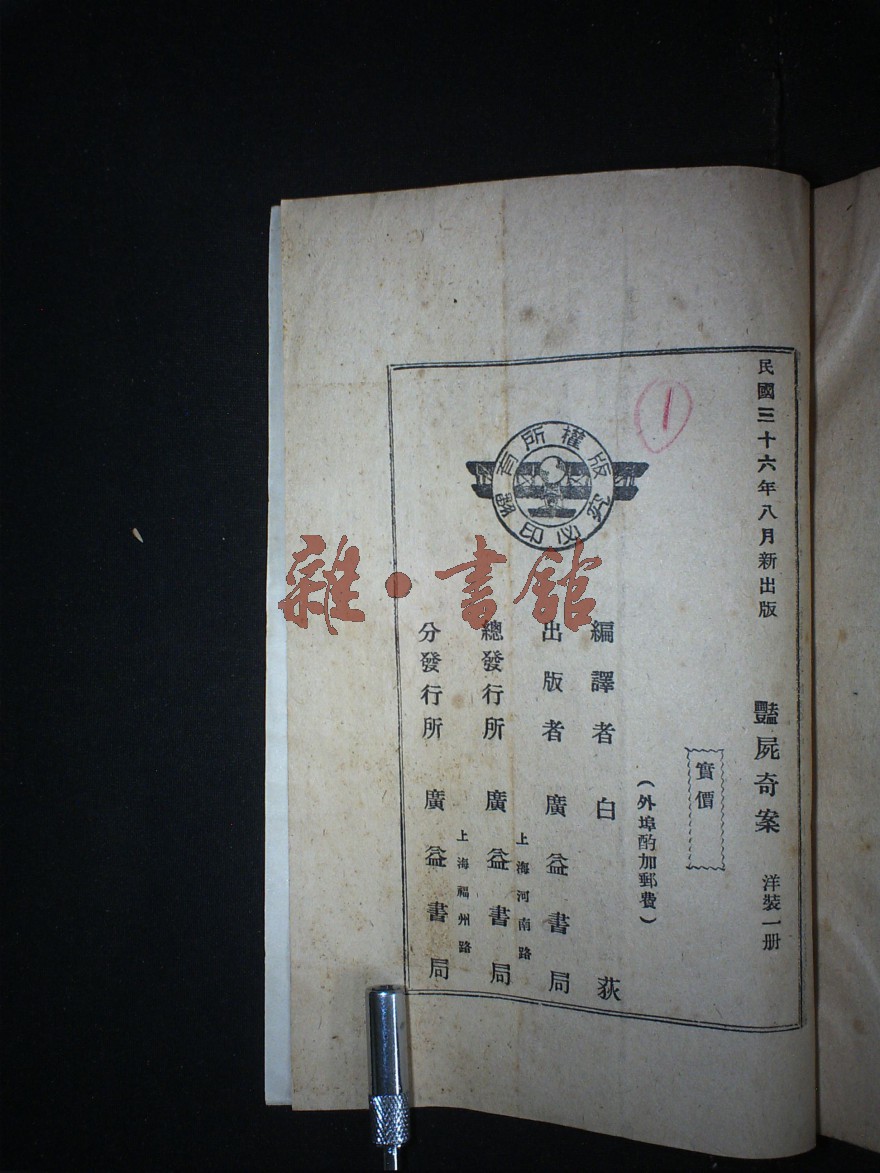 民國三十六年八月新出版
豔屍奇案 洋裝一册
實價
(外埠酌加郵費)
編譯者 白荻
出版者 廣益書局
上海河南路
總發行所 廣益書局
上海福州路
分發行所 廣益書局
版權所有
翻印必究
1
雜·書館